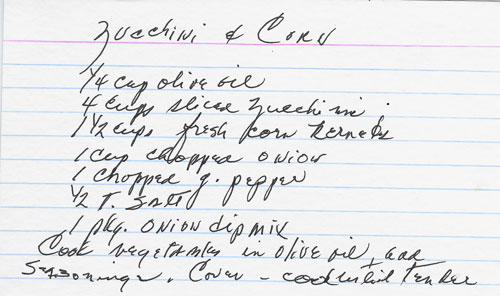 Zucchini & Corn
1/4 cup olive oil
4 cups sliced zucchini
1 1/2 cups fresh corn kernels
1 cup chopped onion
1 chopped g. pepper
1/2 T. salt
1 pkg. onion dip mix
Cook vegetables in olive oil, add
seasonings. Cover - cook until tender